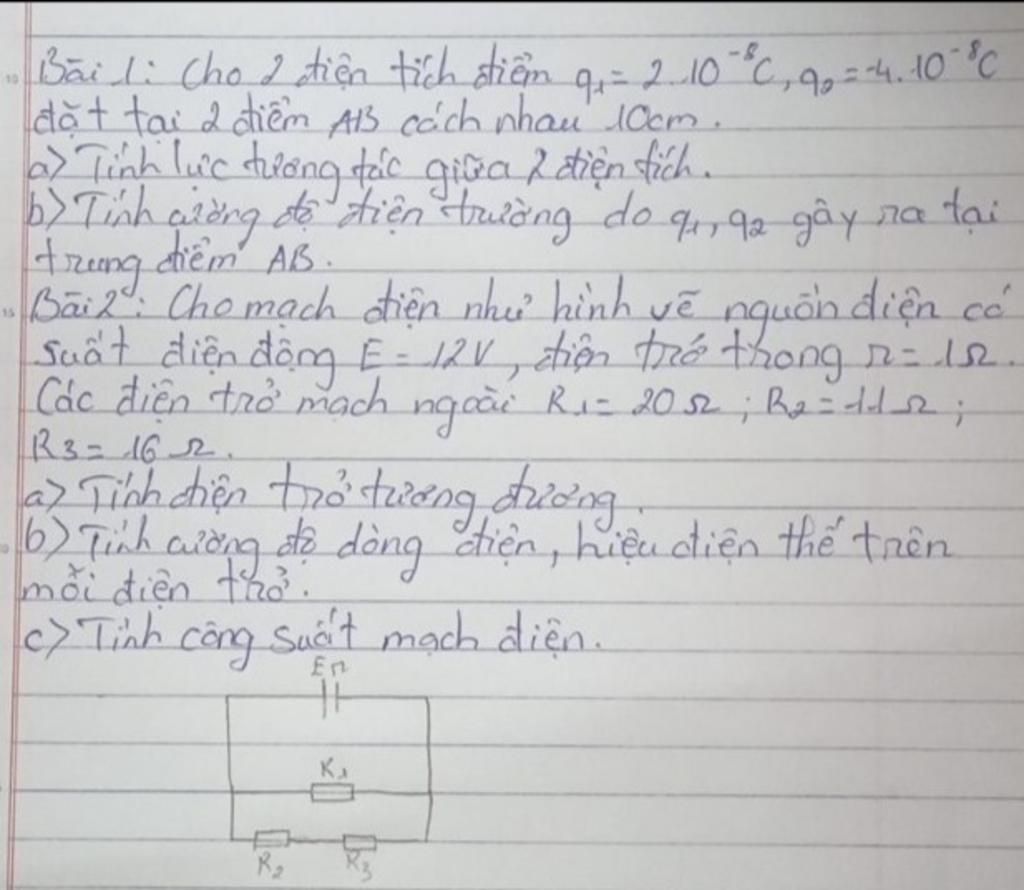 Bài 1: Cho 2 điện tích điểm q₁ = 2.10⁻⁸C, q₂ = -4.10⁻⁸C
đặt tại 2 điểm AB cách nhau 10cm.
a) Tính lực tương tác giữa 2 điện tích.
b) Tính cường độ điện trường do q₁, q₂ gây ra tại
trung điểm AB.
Bài 2: Cho mạch điện như hình vẽ nguồn điện có
suất điện động E = 12V, điện trở trong r = 1Ω.
Các điện trở mạch ngoài R₁ = 20Ω; R₂ = 11Ω;
R3 = 16Ω.
a) Tính điện trở tương đương.
b) Tính cường độ dòng điện, hiệu điện thế trên
mỗi điện trở.
c) Tính công suất mạch điện.
E r
R₁
R₂ R₃